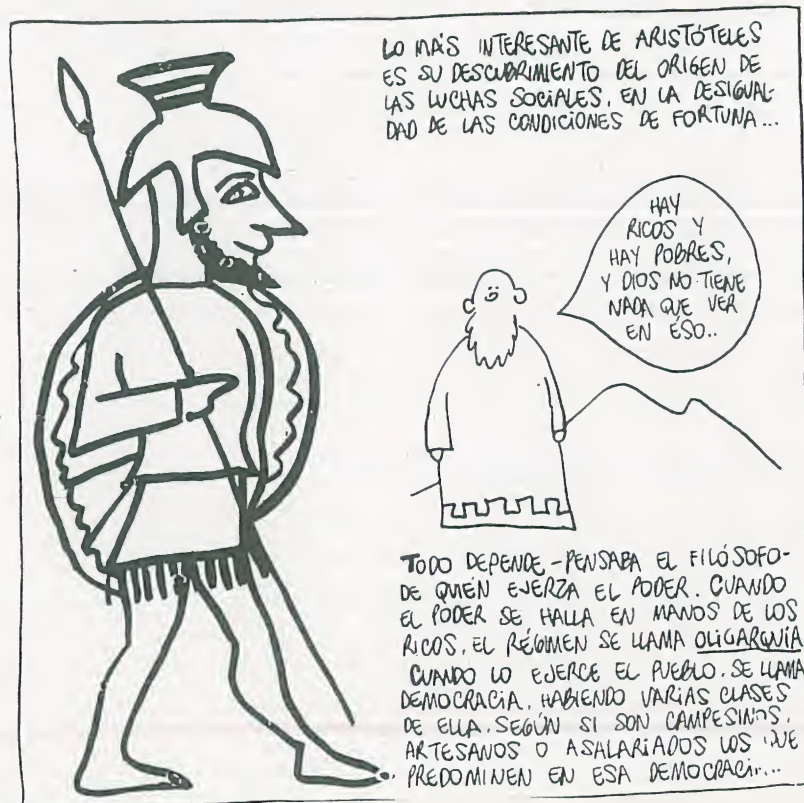 LO MÁS INTERESANTE DE ARISTÓTELES
ES SU DESCUBRIMIENTO DEL ORIGEN DE
LAS LUCHAS SOCIALES, EN LA DESIGUAL-
DAD DE LAS CONDICIONES DE FORTUNA...
HAY
RICOS Y
HAY POBRES,
Y DIOS NO TIENE
NADA QUE VER
EN ÉSO..
TODO DEPENDE-PENSABA EL FILÓSOFO-
DE QUIÉN EJERZA EL PODER. CUANDO
EL PODER SE HALLA EN MANOS DE LOS
RICOS, EL RÉGIMEN SE LLAMA OLIGARQUÍA
CUANDO LO EJERCE EL PUEBLO, SE LLAMA
DEMOCRACIA, HABIENDO VARIAS CLASES
DE ELLA, SEGÚN SI SON CAMPESINOS,
ARTESANOS O ASALARIADOS LOS QUE
PREDOMINEN EN ESA DEMOCRACIA...